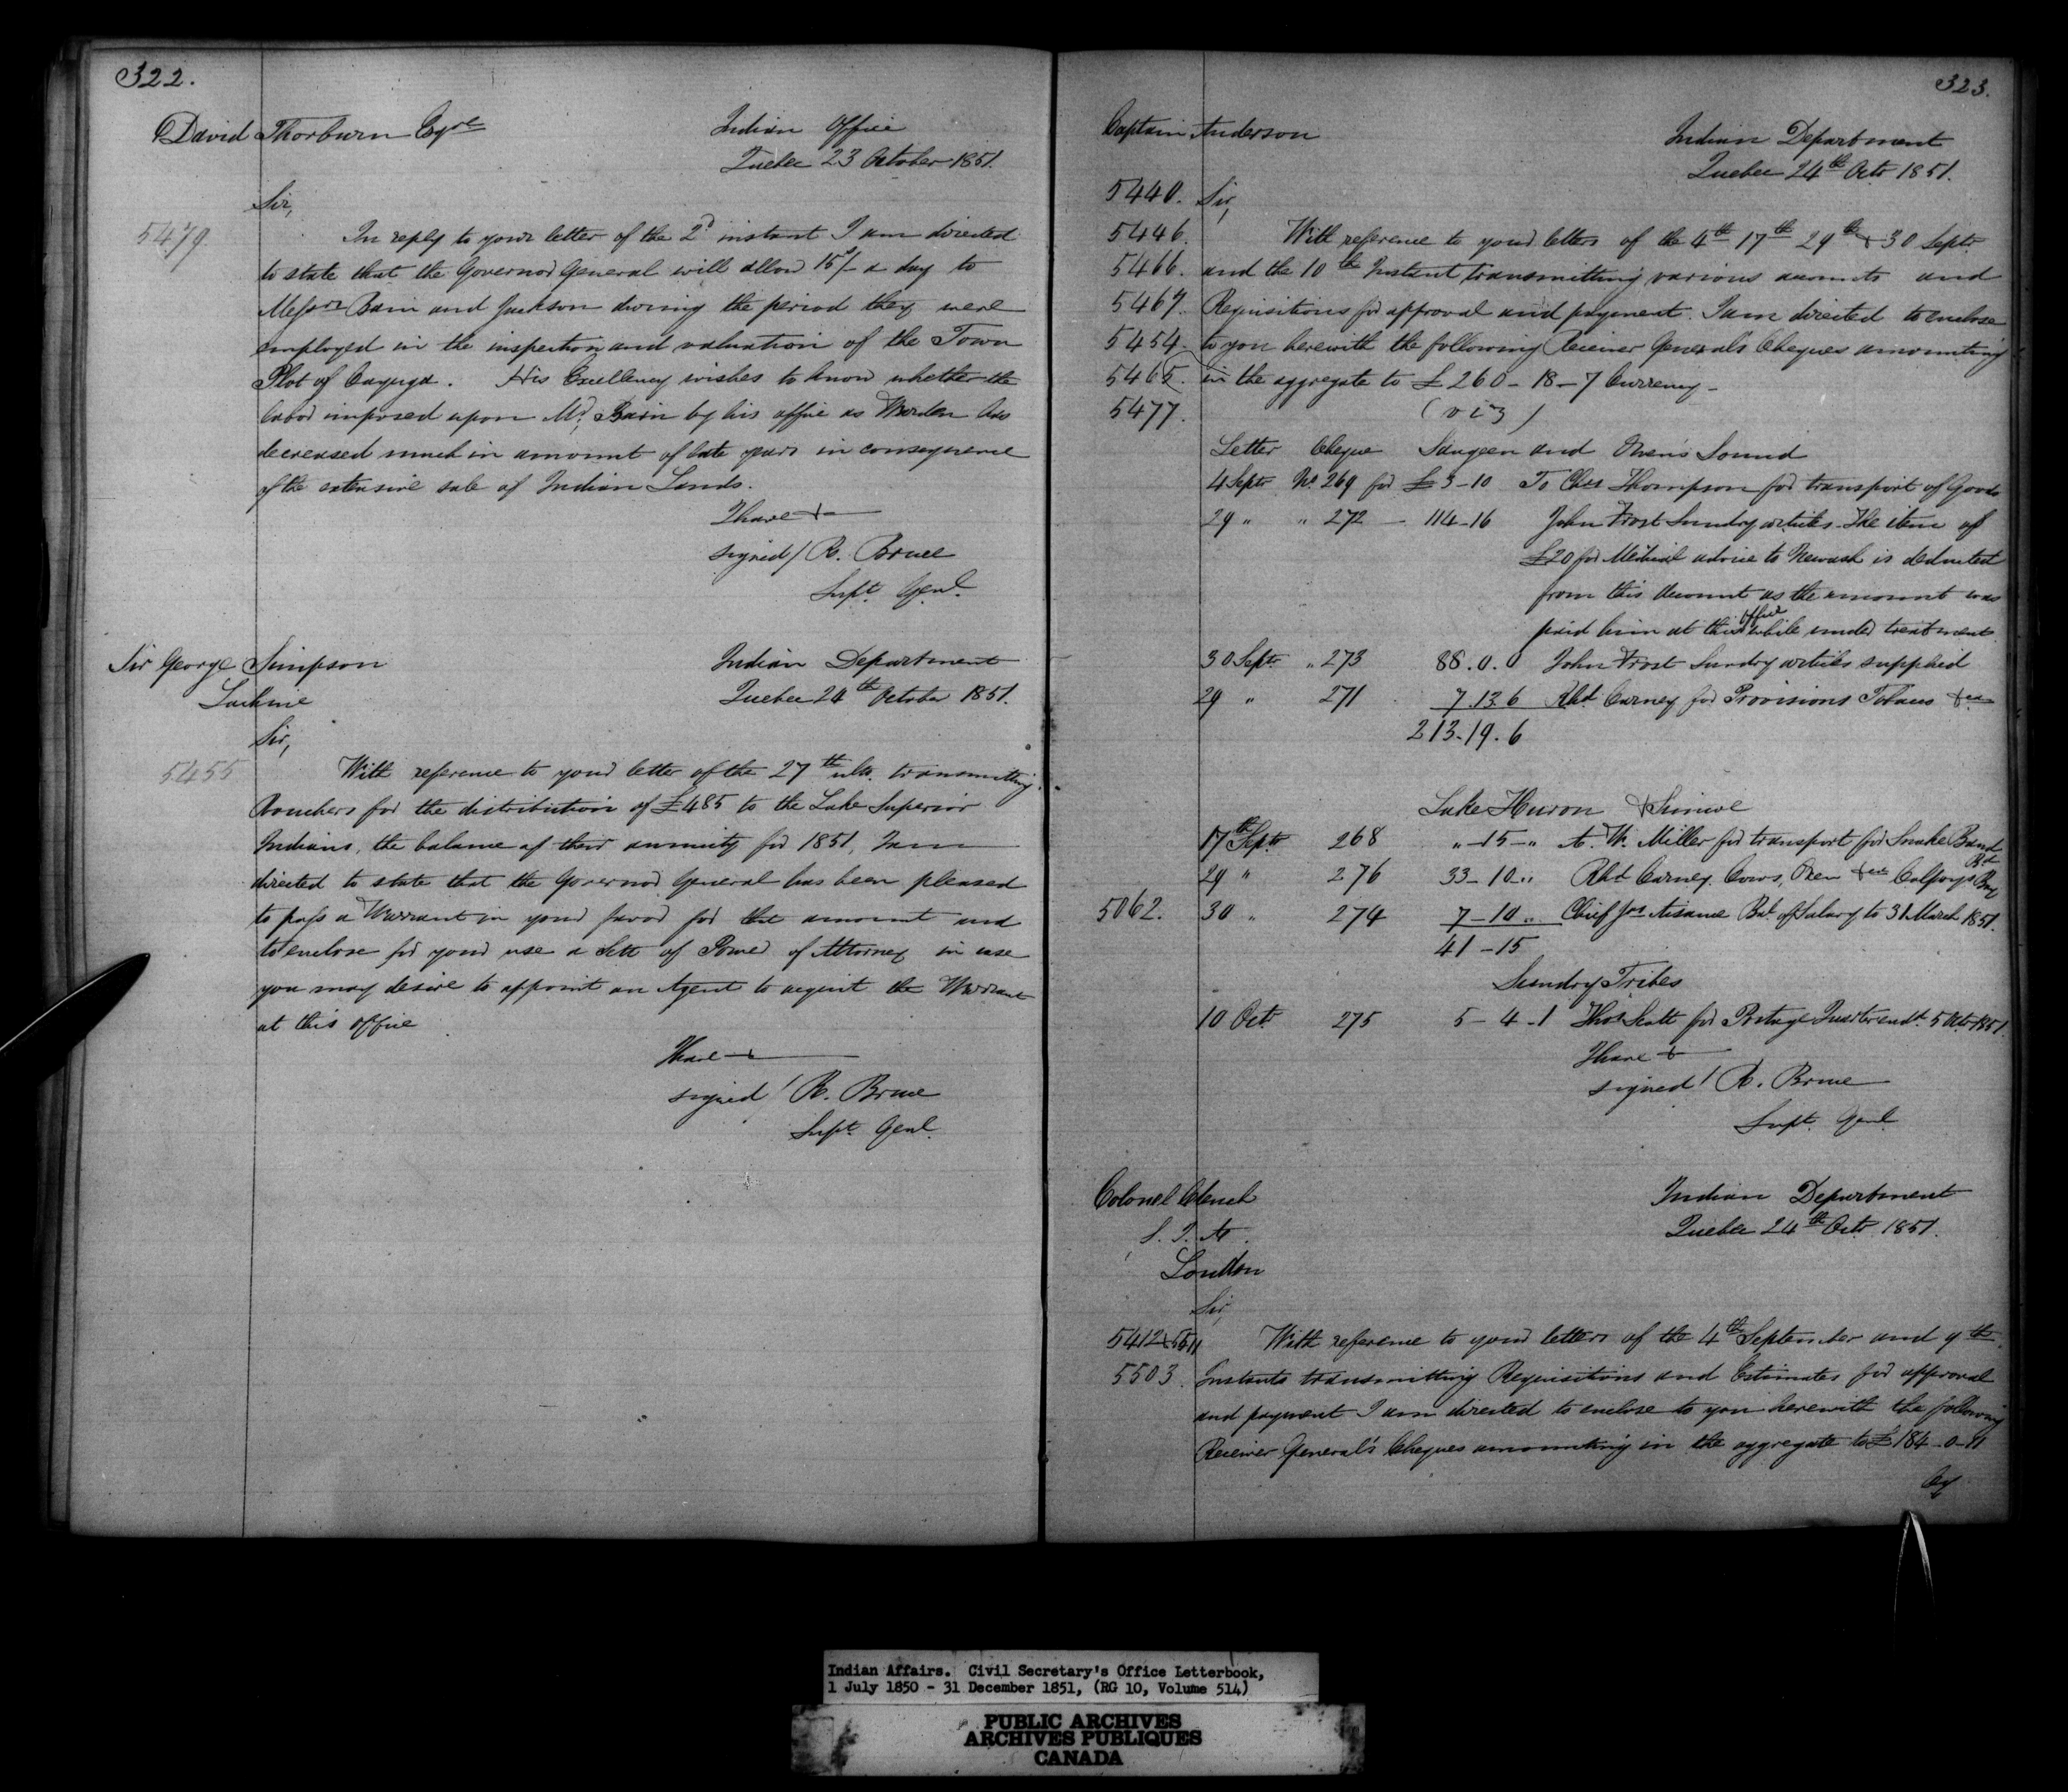 322.
David Thorburn Esqre
Indian Office
Quebec 23 October 1851.
Sir,
5479.
In reply to your letter of the 2d instant I am directed
to state that the Governor General will allow 15s/- a day to
Messrs Bain and Jackson during the period they were
employed in the inspection and valuation of the Town
Plot of Cayuga. His Excellency wishes to know whether the
labor imposed upon Mr Bain by his office as Warden has
decreased much in amount of late years in consequence
of the extensive sale of Indian Lands.
I have &
signed / R. Bruce
Supt. Genl.
Sir George Simpson
Lachine
Indian Department
Quebec 24th October 1851.
Sir,
5455
With reference to your letter of the 27th ulto. transmitting
Vouchers for the distribution of £485 to the Lake Superior
Indians, the balance of their annuity for 1851, I am
directed to state that the Governor General has been pleased
to pass a Warrant in your favor for that amount and
to enclose for your use a Sett of Power of Attorney in case
you may desire to appoint an Agent to acquit the Warrant
at this office
I have &
signed / R. Bruce
Supt. Genl.
323.
Captain Anderson
Indian Department
Quebec 24th Octr 1851.
5440. Sir,
5446. With reference to your letters of the 4th 17th 29th & 30 Septr
5466. and the 10th Instant transmitting various accounts and
5467. Requisitions for approval and payment. I am directed to enclose
5454. to you herewith the following Receiver General's Cheques amounting
5465. in the aggregate to £260-18-7 Currency-
5477. (viz)
Letter Cheque Saugeen and Owen's Sound
4 Septr No. 269 for £3-10 To Chas Thompson for transport of Goods
29 " " 272 - 114-16 John Frost Sundry articles. The item of
£20 for Medical advice to Newash is deducted
from this Account as the amount was
paid him at this office while under treatment.
30 Septr " 273 88.0.0 John Frost Sundry articles supplied
29 " 271 7.13.6 Rbt. Carney for Provisions &ca
213.19.6
Lake Huron & Simcoe
17th Septr 268 "-15-" A. W. Miller for transport for Snake Band
29 " 276 33-10-" Rbt Carney. Cows, Oxen &ca Colpoys Bay Bd
5062. 30 " 274 7-10 " Chief Jas Aisance Bal. of Salary to 31 March 1851.
41-15
Sundry Tribes
10 Oct. 275 5-4-1 Thos Scott for Postage Quarter endg. 5 Octr 1851.
I have &
signed / R. Bruce
Supt. Genl.
Colonel Clench
S. I. A.
London
Indian Department
Quebec 24th Octr 1851.
Sir,
5412 & 5511 With reference to your letters of the 4th September and 9th
5503. Instants transmitting Requisitions and Estimates for approval
and payment I am directed to enclose to you herewith the following
Receiver General's Cheques amounting in the aggregate to £184-0-11
Cy
Indian Affairs. Civil Secretary's Office Letterbook,
1 July 1850 - 31 December 1851, (RG 10, Volume 514)
PUBLIC ARCHIVES
ARCHIVES PUBLIQUES
CANADA